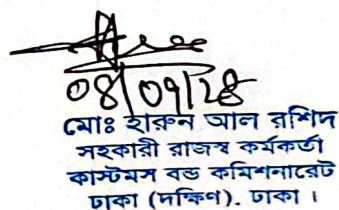 08/09/28
মোঃ হারুন আল রশিদ
সহকারী রাজস্ব কর্মকর্তা
কাস্টমস বন্ড কমিশনারেট
ঢাকা (দক্ষিণ). ঢাকা ।